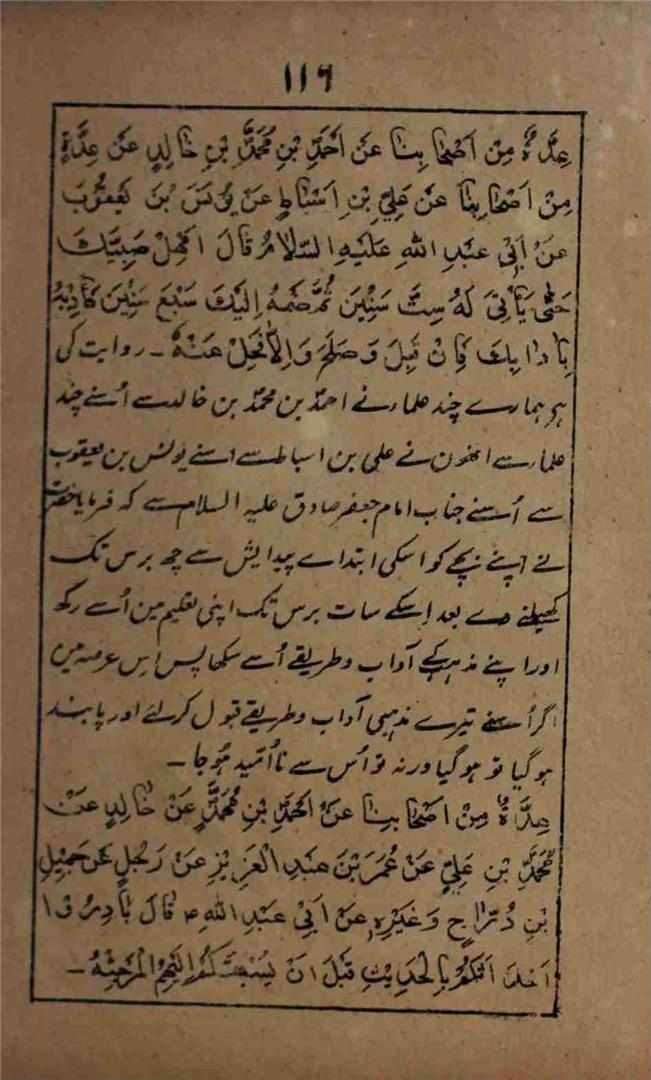 ۱۱۶
عِدَّةٌ مِنْ اَصْحَابِنَا عَنْ اَحْمَدَ بْنِ مُحَمَّدِ بْنِ خَالِدٍ عَنْ عِدَّةٍ
مِنْ اَصْحَابِنَا عَنْ عَلِيِّ بْنِ اَسْبَاطٍ عَنْ يُونُسَ بْنَ يَعْقُوْبَ
عَنْ اَبِیْ عَبْدِ اللهِ عَلَيْهِ السَّلَامُ قَالَ اَمْهِلْ صَبِيَّكَ
حَتّٰى يَأْتِیَ لَهُ سِتُّ سِنِيْنَ ثُمَّ ضُمَّهُ اِلَيْكَ سَبْعَ سِنِيْنَ فَاَدِّبْهُ
بِاَدَابِكَ فَاِنْ قَبِلَ وَصَلَحَ وَاِلَّا فَخَلِّ عَنْهُ ۔ روایت کی
ہے ہمارے چند علمار نے احمد بن محمد بن خالد سے اُسنے چند
علمار سے انہون نے علی بن اسباط سے اسنے یونس بن یعقوب
سے اُسنے جناب امام جعفر صادق علیہ السلام سے کہ فرمایا حضرت
نے اپنے بچے کو اسکی ابتداے پیدایش سے چھ برس تک
کھیلنے دے بعد اِسکے سات برس تک اپنی تعلیم مین اُسے رکھ
اور اپنے مذہب کے آداب و طریقے اُسے سکھا پس اِس عرصہ مین
اگر اُسنے تیرے مذہبی آداب و طریقے قبول کر لئے اور پابند
ہو گیا تو ہو گیا ورنہ تو اُس سے نا اُمید ہو جا ۔
عِدَّةٌ مِنْ اَصْحَابِنَا عَنْ اَحْمَدَ بْنِ مُحَمَّدٍ عَنْ خَالِدٍ عَنْ
مُحَمَّدِ بْنِ عَلِيٍّ عَنْ عُمَرَ بْنَ عَبْدِ الْعَزِيْزِ عَنْ رَجُلٍ عَنْ جَمِيْلِ
بْنِ دُرَّاجٍ وَغَيْرِهِ عَنْ اَبِیْ عَبْدِ اللهِ ع قَالَ بَادِرُوْا
اَحْدَاثَكُمْ بِالْحَدِيْثِ قَبْلَ اَنْ يَسْبِقَكُمْ اِلَيْهِمُ الْمُرْجِئَةُ ۔